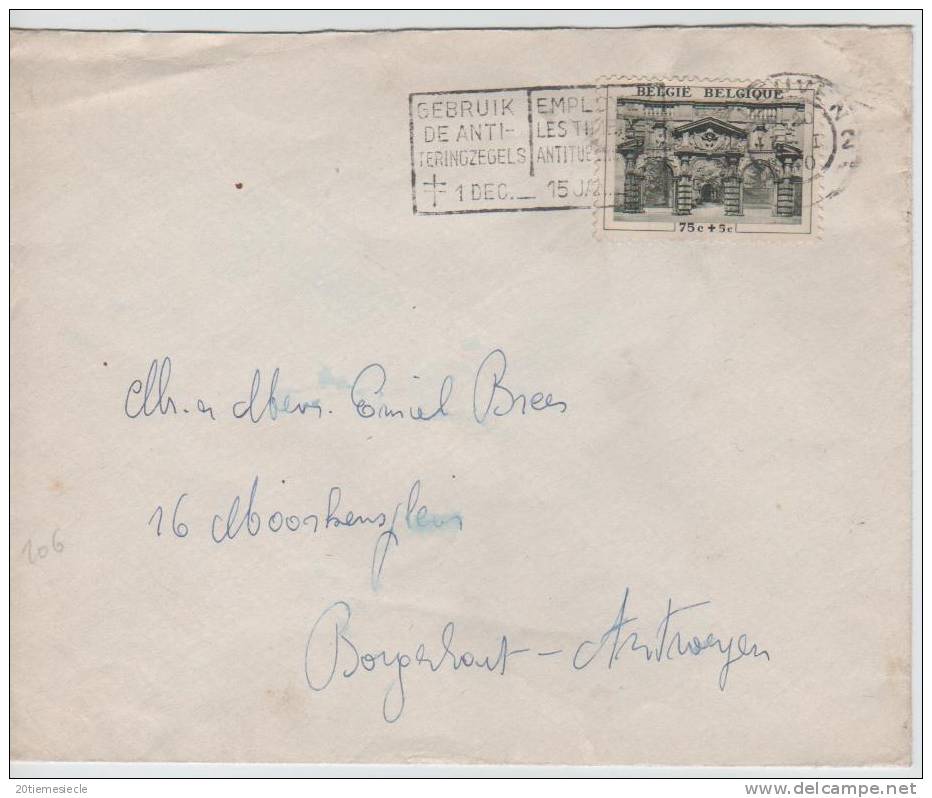 GEBRUIK
DE ANTI-
TERINGZEGELS
1 DEC. —
LES
15 JA
BELGIË BELGIQUE
75c + 5c
Mr. en Mevr. Emiel Brees
16 Moorkensplein
106
Borgerhout - Antwerpen
20tiemesiecle
www.delcampe.net